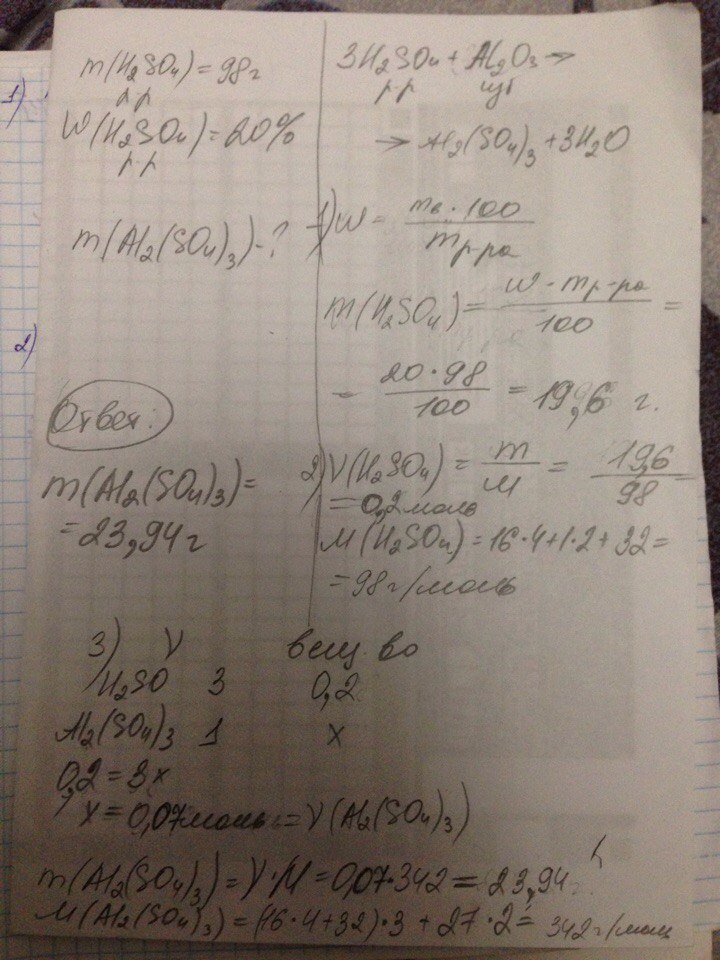 1)
m(H₂SO₄) = 98 г
р-р
W(H₂SO₄) = 20%
р-р
m(Al₂(SO₄)₃) - ?
2)
Ответ:
m(Al₂(SO₄)₃) =
= 23,94 г
3H₂SO₄ + Al₂O₃ →
р-р изб
→ Al₂(SO₄)₃ + 3H₂O
1) W = mв · 100 / mр-ра
m(H₂SO₄) = W · mр-ра / 100 =
= 20 · 98 / 100 = 19,6 г.
2) ν(H₂SO₄) = m / M = 19,6 / 98
= 0,2 моль
M(H₂SO₄) = 16·4 + 1·2 + 32 =
= 98 г/моль
3) ν вещ-во
H₂SO 3 0,2
Al₂(SO₄)₃ 1 x
0,2 = 3x
x = 0,07 моль = ν(Al₂(SO₄)₃)
m(Al₂(SO₄)₃) = ν·M = 0,07·342 = 23,94 г.
M(Al₂(SO₄)₃) = (16·4+32)·3 + 27·2 = 342 г/моль